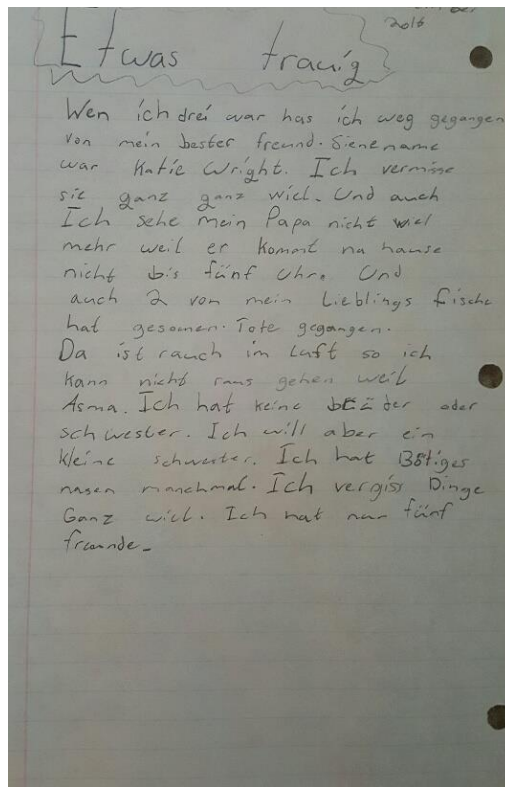 2016
Etwas trauig
Wen ich drei war has ich weg gegangen
von mein bester freund. Sienename
war Katie Wright. Ich vermisse
sie ganz ganz wiel. Und auch
Ich sehe mein Papa nicht wiel
mehr weil er kommt na hause
nicht bis fünf Uhr. Und
auch 2 von mein Lieblings fische
hat Tote gegangen.
Da ist rauch im Luft so ich
kann nicht raus gehen weil
Asma. Ich hat keine oder
schwester. Ich will aber ein
kleine schwester. Ich hat Bötiges
nasen manchmal. Ich vergiss Dinge
Ganz wiel. Ich hat nur fünf
freunde.